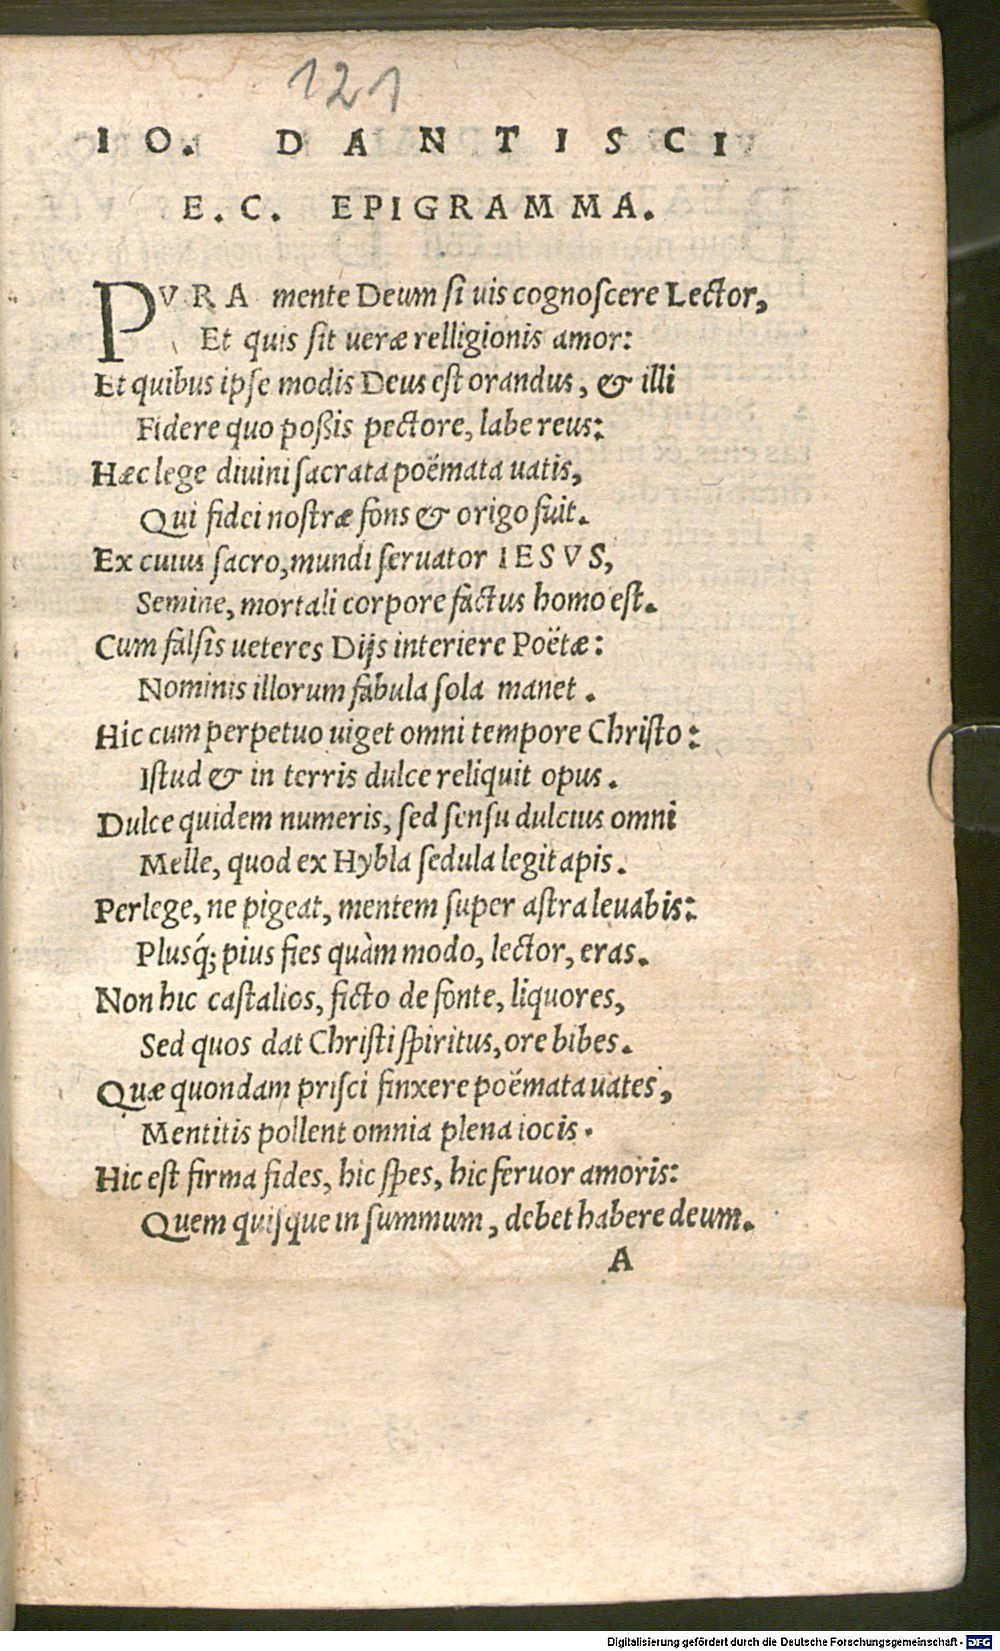 121
IO. DANTISCI
E. C. EPIGRAMMA.
PVRA mente Deum si uis cognoscere Lector,
Et quis sit ueræ relligionis amor:
Et quibus ipse modis Deus est orandus, & illi
Fidere quo poßis pectore, labe reus:
Hæc lege diuini sacrata poëmata uatis,
Qui fidei nostræ fons & origo fuit.
Ex cuius sacro, mundi seruator IESVS,
Semine, mortali corpore factus homo est.
Cum falsis ueteres Dijs interiere Poëtæ:
Nominis illorum fabula sola manet.
Hic cum perpetuo uiget omni tempore Christo:
Istud & in terris dulce reliquit opus.
Dulce quidem numeris, sed sensu dulcius omni
Melle, quod ex Hybla sedula legit apis.
Perlege, ne pigeat, mentem super astra leuabis:
Plusq́; pius fies quàm modo, lector, eras.
Non hic castalios, ficto de fonte, liquores,
Sed quos dat Christi spiritus, ore bibes.
Quæ quondam prisci finxere poëmata uates,
Mentitis pollent omnia plena iocis.
Hic est firma fides, hic spes, hic feruor amoris:
Quem quisque in summum, debet habere deum.
A
Digitalisierung gefördert durch die Deutsche Forschungsgemeinschaft - DFG